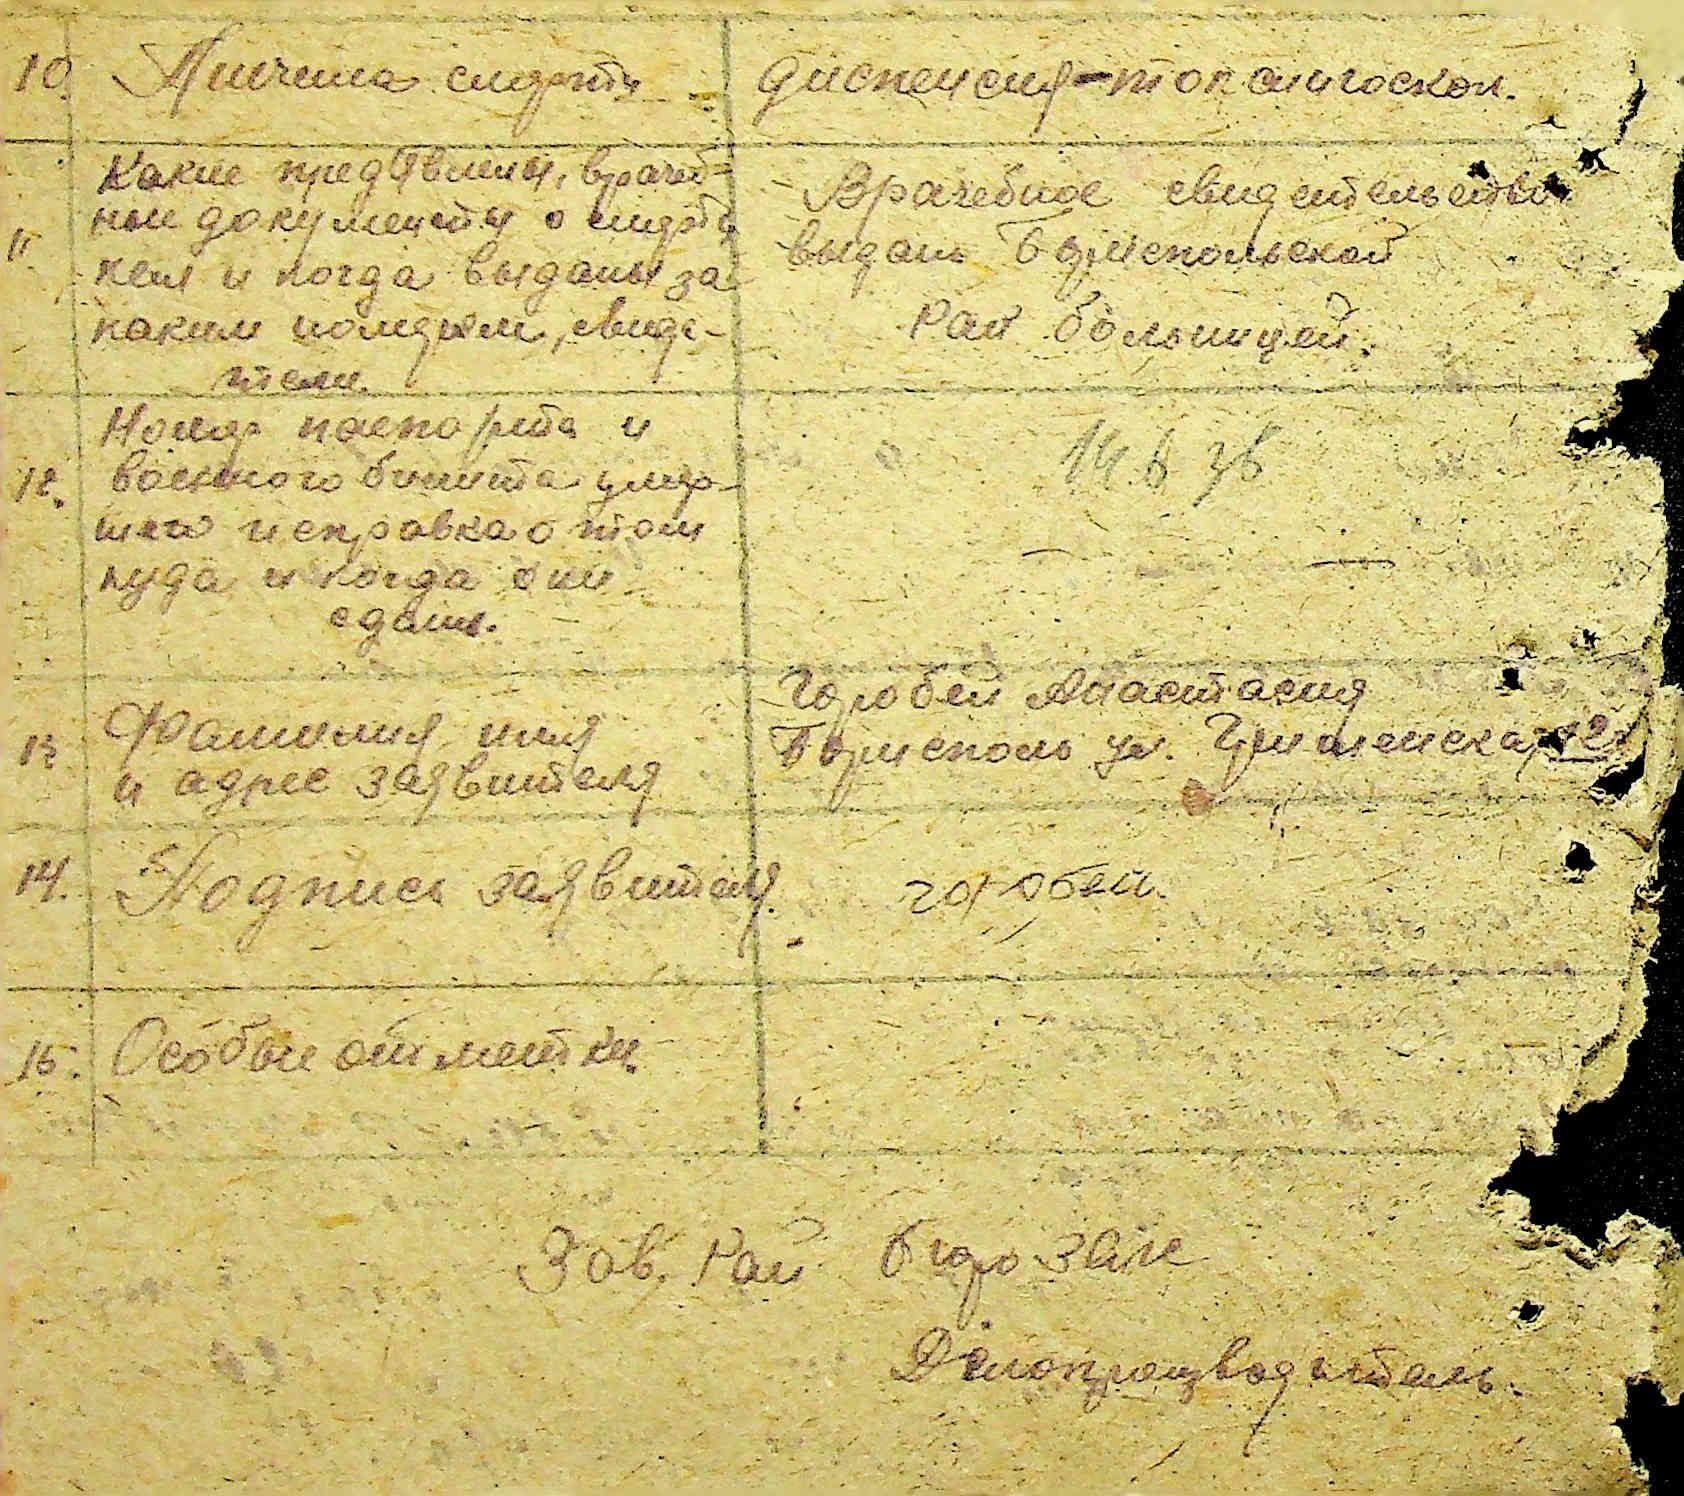 10. Пичина смерти
диспенсия-токсмигоскоп.
11. Какие предявлены, врачеб-
ные документы о смерти
кем и когда выданы за
каким номером, свиде-
тели.
Врачебное свидетельство
выдано Бориспольской
Рай больницей.
12. Номер паспорта и
военного билета умер-
шего и справка о том
куда и когда они
сданы.
" 14 в 36
— —
13. Фамилия имя
и адрес заявителя
Горобей Анастасия
Борисполь ул. 12
14. Подпись заявителя.
горобей.
15. Особые отметки.
Зав. Рай бюро
Делопроизводитель.